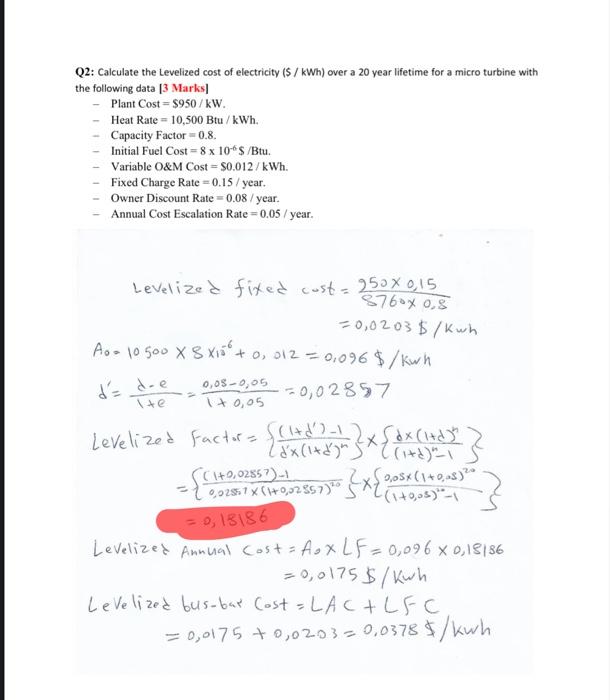 Q2: Calculate the Levelized cost of electricity ($ / kWh) over a 20 year lifetime for a micro turbine with
the following data [3 Marks]
– Plant Cost = $950 / kW.
– Heat Rate = 10,500 Btu / kWh.
– Capacity Factor = 0.8.
– Initial Fuel Cost = 8 x 10⁻⁶ $ /Btu.
– Variable O&M Cost = $0.012 / kWh.
– Fixed Charge Rate = 0.15 / year.
– Owner Discount Rate = 0.08 / year.
– Annual Cost Escalation Rate = 0.05 / year.
Levelized fixed cost = 950 x 0,15 / 8760 x 0,8
= 0,0203 $ / Kwh
A₀ = 10 500 x 8 x10⁻⁶ + 0,012 = 0,096 $/Kwh
d' = d-e / 1+e = 0,08-0,05 / 1+0,05 = 0,02857
Levelized Factor = {(1+d')-1 / d'x(1+d')ⁿ} x {dx(1+d)ⁿ / (1+d)ⁿ-1}
= {(1+0,02857)-1 / 0,02857 x (1+0,02857)²⁰} x {0,08x(1+0,08)²⁰ / (1+0,08)²⁰-1}
= 0,18186
Levelized Annual Cost = A₀ x LF = 0,096 x 0,18186
= 0,0175 $/Kwh
Levelized bus-bar Cost = LAC + LFC
= 0,0175 + 0,0203 = 0,0378 $/kwh